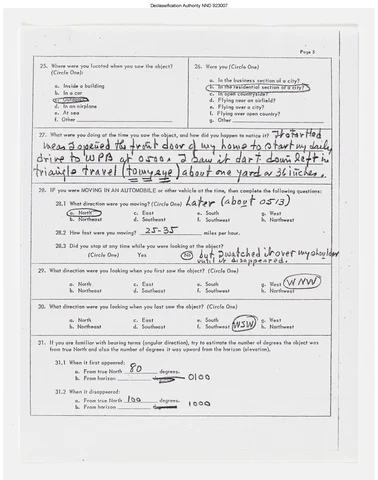 Declassification Authority NND 923007
Page 5
25. Where were you located when you saw the object? (Circle One):
26. Were you (Circle One)
a. Inside a building
b. In a car
c. Outdoors
d. In an airplane
e. At sea
f. Other
a. In the business section of a city?
b. In the residential section of a city?
c. In open countryside?
d. Flying near an airfield?
e. Flying over a city?
f. Flying over open country?
g. Other
27. What were you doing at the time you saw the object, and how did you happen to notice it? It startled
me as I opened the front door of my home to start my daily
drive to WPB at 0500. I saw it dart down left in
triangle travel (to my eye) about one yard or 36 inches.
28. IF you were MOVING IN AN AUTOMOBILE or other vehicle at the time, then complete the following questions:
28.1 What direction were you moving? (Circle One) Later (about 0513)
a. North c. East e. South g. West
b. Northeast d. Southeast f. Southwest h. Northwest
28.2 How fast were you moving? 25-35 miles per hour.
28.3 Did you stop at any time while you were looking at the object?
(Circle One) Yes No but I watched it over my shoulder
until it disappeared.
29. What direction were you looking when you first saw the object? (Circle One)
a. North c. East e. South g. West WNW
b. Northeast d. Southeast f. Southwest h. Northwest
30. What direction were you looking when you last saw the object? (Circle One)
a. North c. East e. South g. West
b. Northeast d. Southeast f. Southwest WSW h. Northwest
31. If you are familiar with bearing terms (angular direction), try to estimate the number of degrees the object was
from true North and also the number of degrees it was upward from the horizon (elevation).
31.1 When it first appeared:
a. From true North 80 degrees.
b. From horizon 0100
31.2 When it disappeared:
a. From true North 100 degrees.
b. From horizon 1000